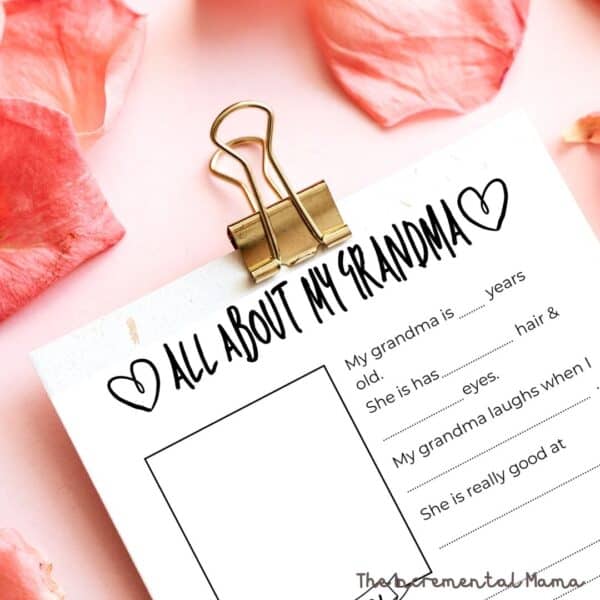 ALL ABOUT MY GRANDMA
My grandma is ........ years
old.
She is has .................... hair &
...................... eyes.
My grandma laughs when I
.
She is really good at
The Incremental Mama